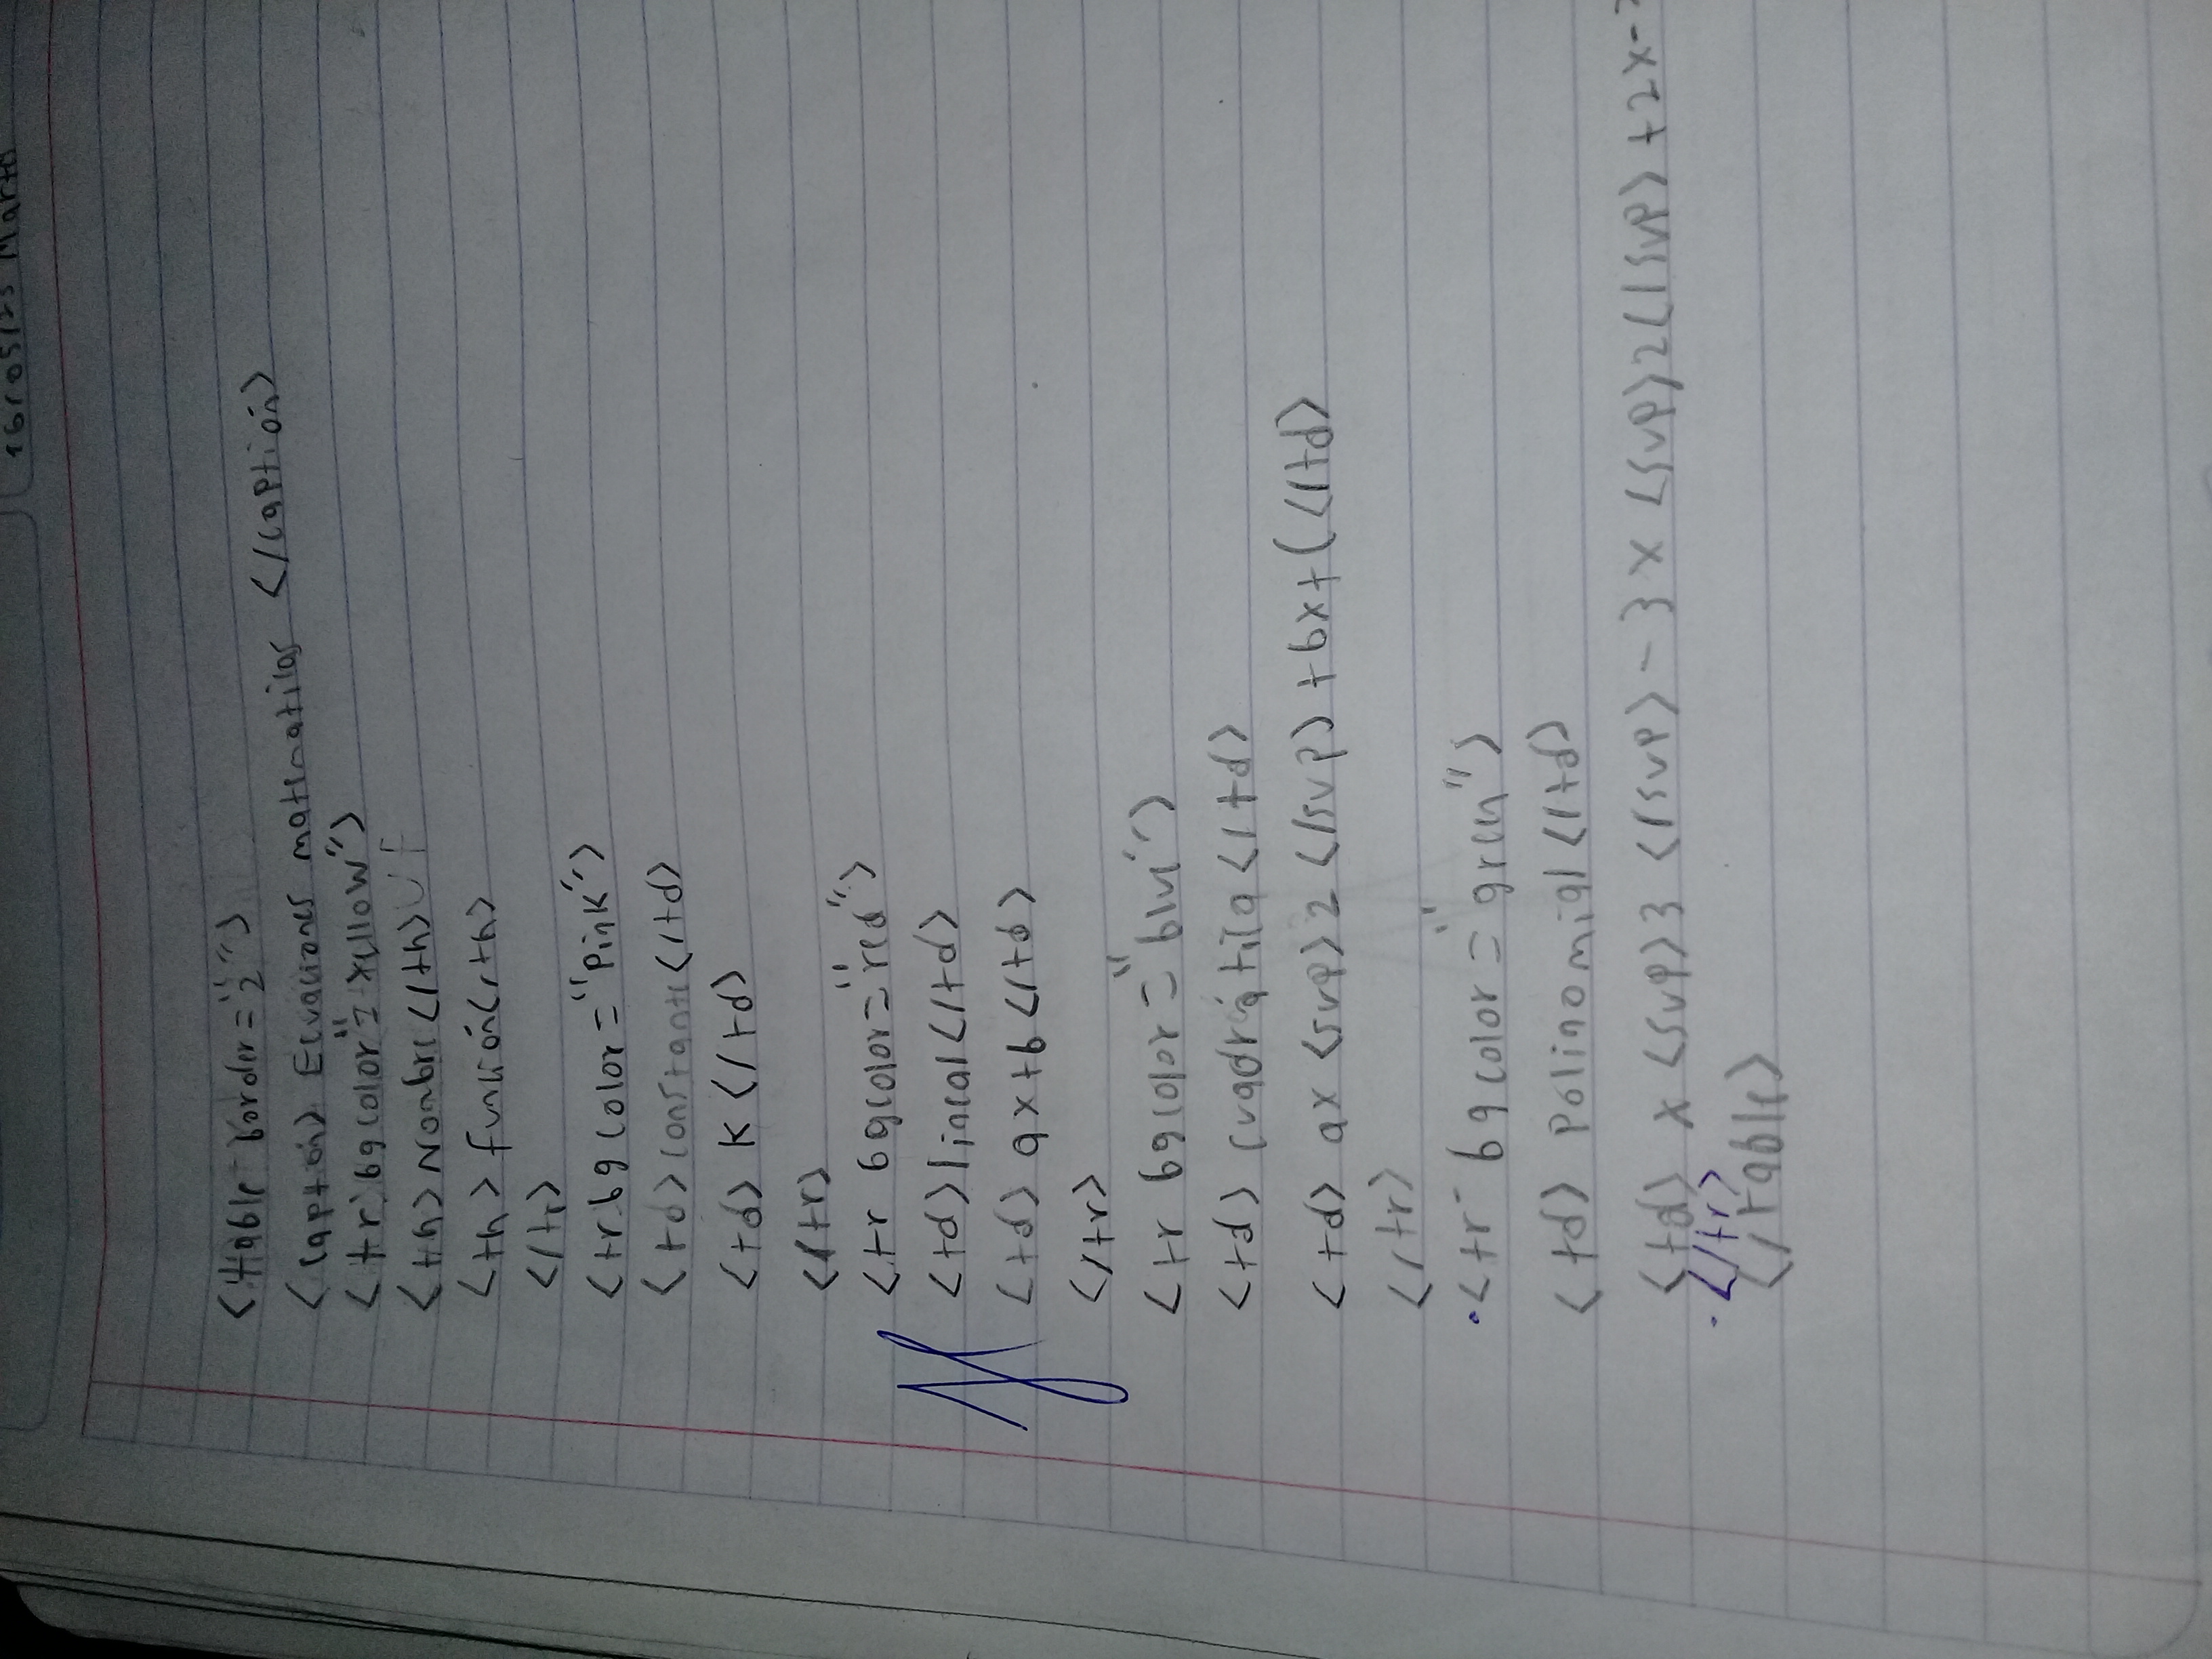 16/05/23 Martes
<table border="2">
<caption> Ecuaciones matematicas </caption>
<tr bgcolor"= yellow">
<th> Nombre </th>
<th> función</th>
</tr>
<tr bgcolor="Pink">
<td> constante </td>
<td> K </td>
</tr>
<tr bgcolor="red">
<td> lineal </td>
<td> ax+b </td>
</tr>
<tr bgcolor="blue">
<td> cuadrática </td>
<td> ax <sup> 2 </sup> +bx+c </td>
</tr>
<tr bgcolor="green">
<td> Polinomial </td>
<td> x <sup> 3 </sup> - 3x <sup> 2 </sup> +2x-
</tr>
</table>